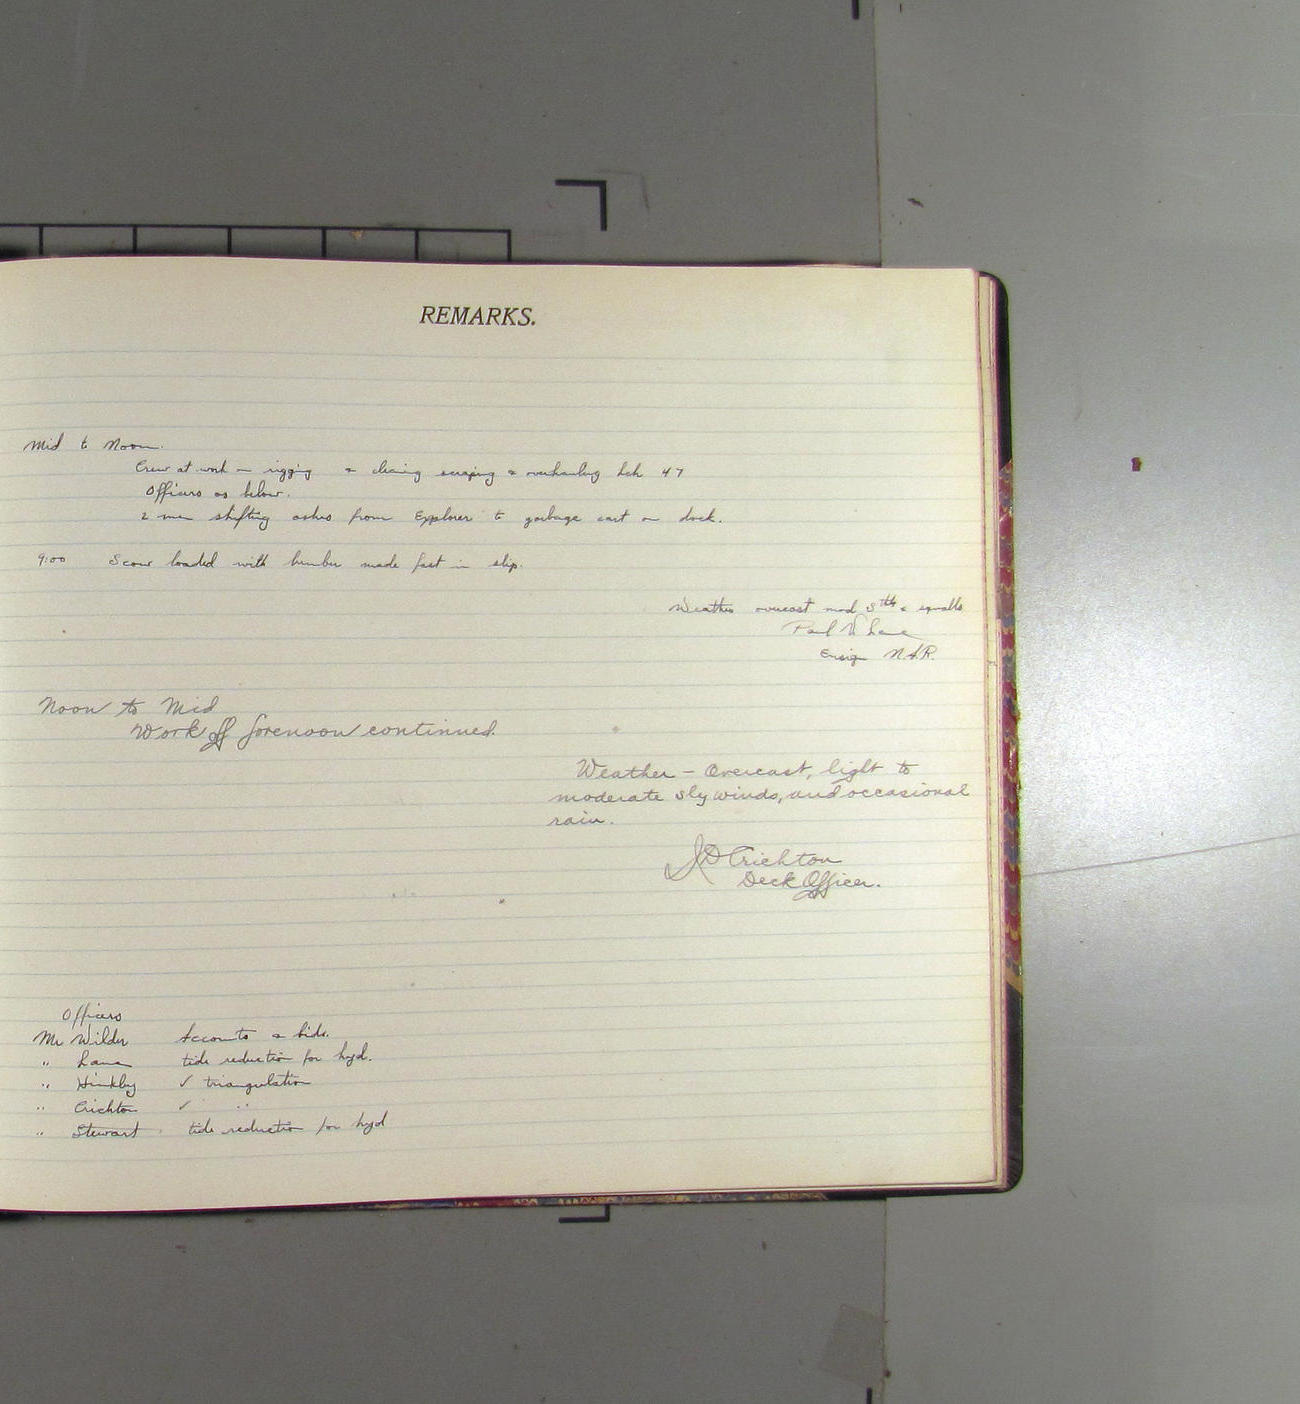 REMARKS.
Mid to Noon.
Crew at work on rigging & cleaning scraping & overhauling lch 47
Officers as below.
2 men shifting ashes from Explorer to garbage cart on dock.
9:00 Scow loaded with lumber made fast in slip.
Weather overcast mod. & squalls
Paul W Lane
Ensign N.A.R.
Noon to Mid
Work of forenoon continued.
Weather - Overcast, light to
moderate sly winds, and occasional
rain.
JD Crichton
Deck Officer.
Officers
Mr Wilder Accounts & bids.
" Lane tide reduction for hyd.
" Hinkley ✓ triangulation
" Crichton ✓ "
" Stewart tide reduction for hyd